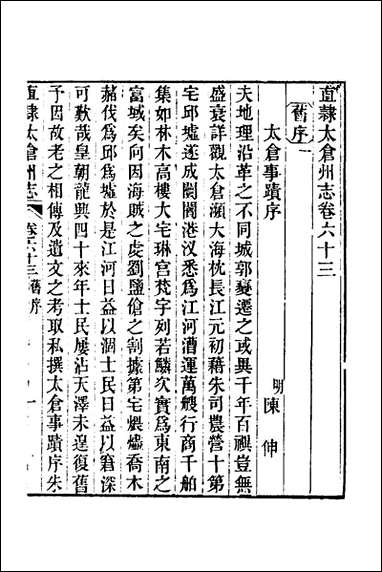 直隸太倉州志卷六十三
舊序
太倉事蹟序
明陳伸
夫地理沿革之不同城郭變遷之或異千年百禩豈無
盛衰詳觀太倉瀕大海枕長江元初藉朱司農營十第
宅邱墟遂成闤闠港汊悉爲江河漕運萬艘行商千舶
集如林木高樓大宅琳宮梵宇列若鱗次實爲東南之
富域矣向因海賊之虔劉鹽傖之割據第宅煨燼喬木
赭伐爲邱爲墟於是江河日益以涸士民日益以窘深
可歎哉皇朝龍興四十來年士民屢沾天澤未遑復舊
予因故老之相傳及遺文之考取私撰太倉事蹟序朱
直隸太倉州志
卷六十三舊序
一